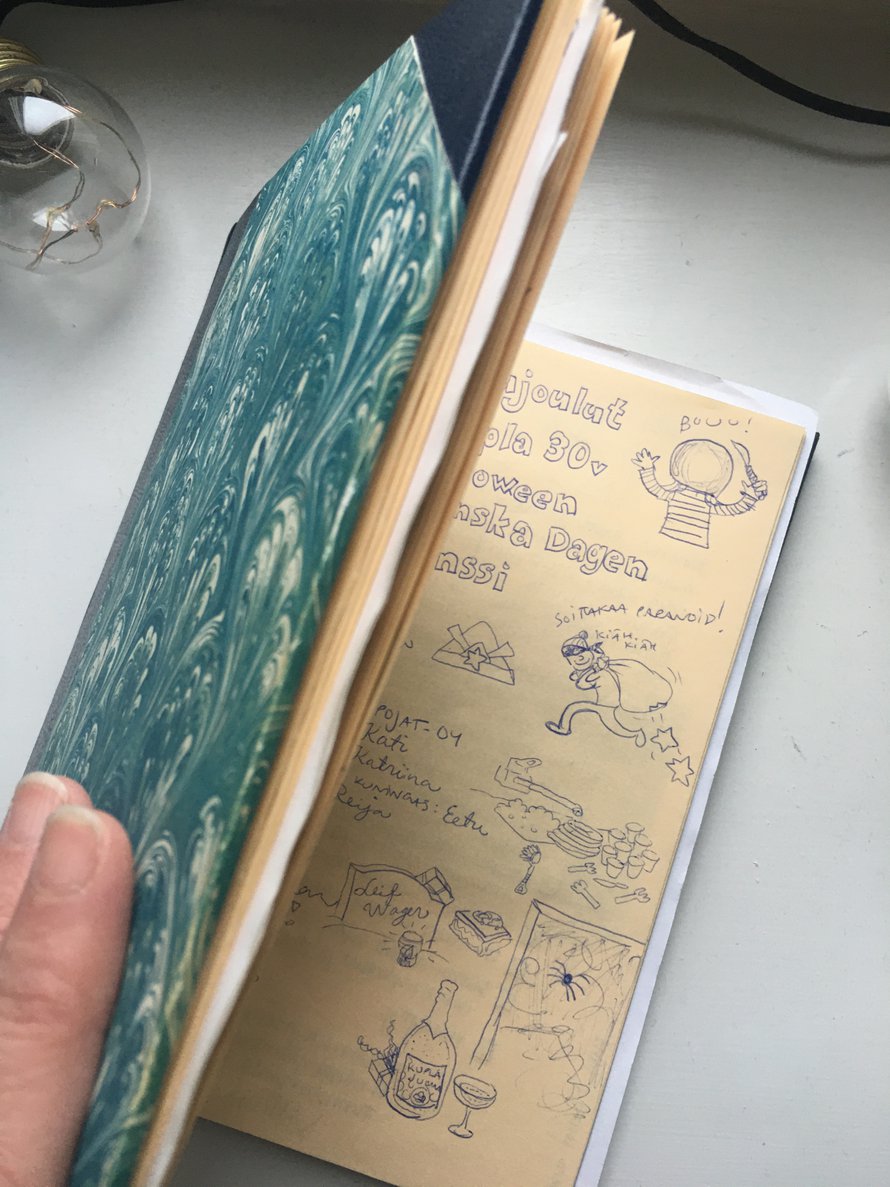 ujoulut
pla 30v
oween
nska Dagen
nssi
BUUU!
SOITAKAA PARANOID!
KIÄH,
KIÄH
POJAT-04
Kati
Katriina
KUNINGAS: Eetu
Reija
en
Leif
Wager
KUPLA
JUOMA